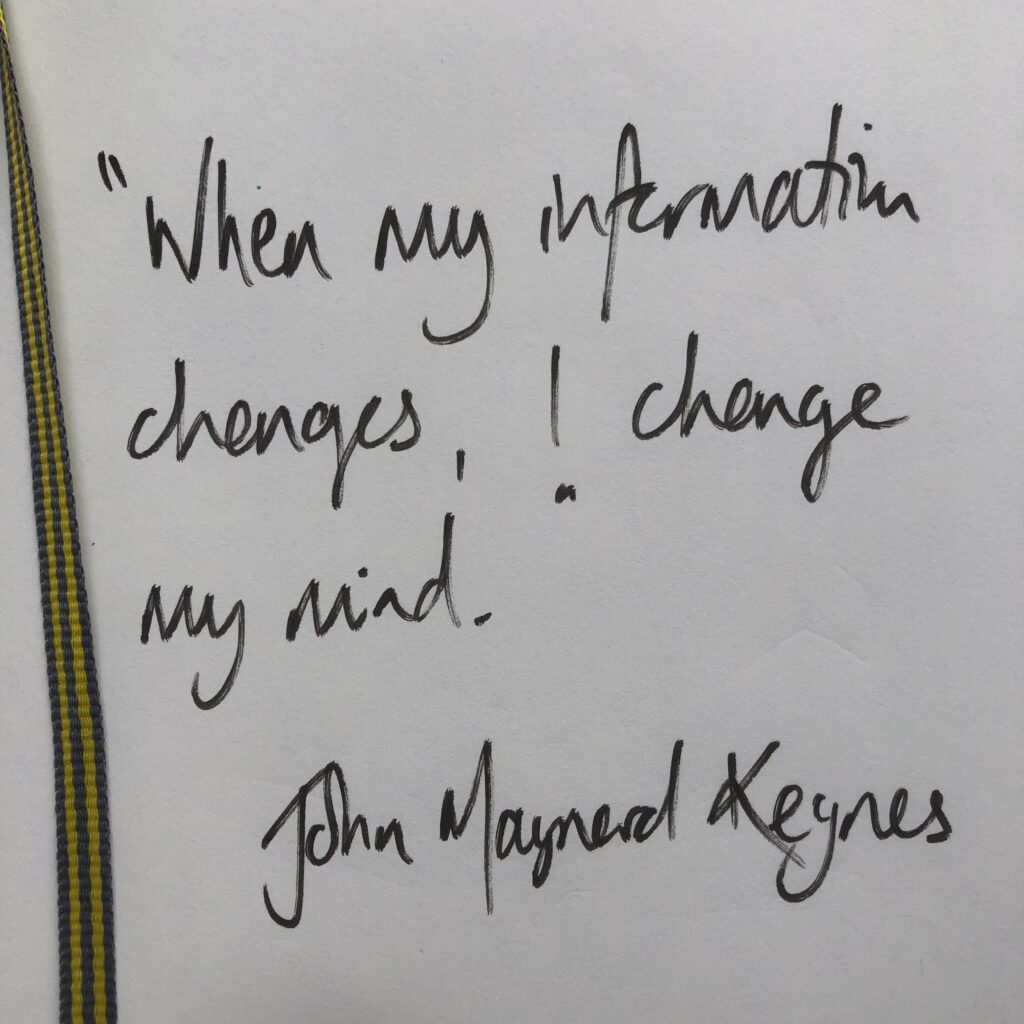 "When my information
changes, I change
my mind."
John Maynard Keynes